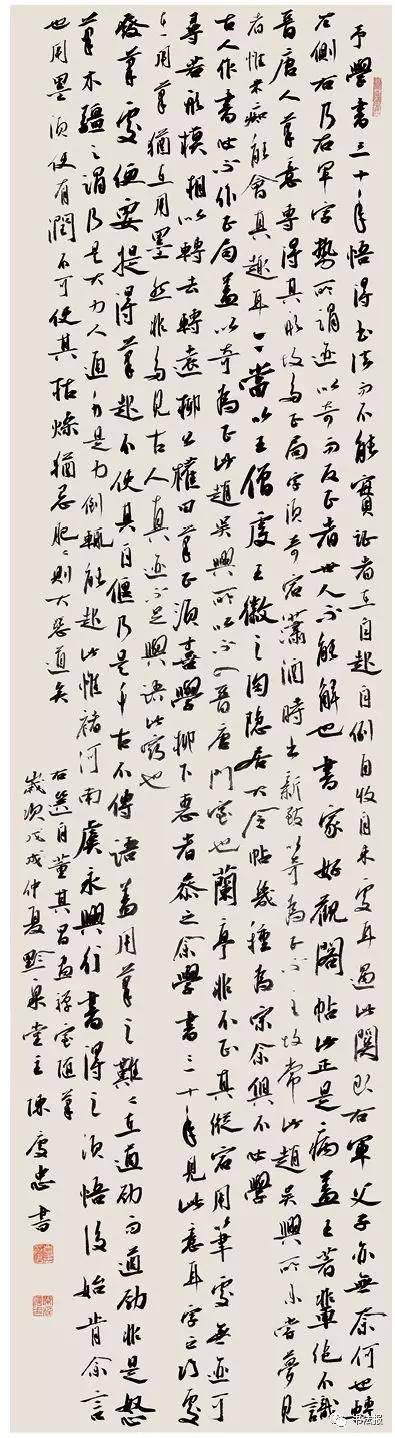 予學書三十年悟得書法而不能實證者在自起自倒自收自束處耳過此關即右軍父子亦無奈何也轉
左側右乃右軍字勢所謂迹似奇而反正者世人不能解也書家好觀閣帖此正是病蓋王著輩絕不識
晉唐人筆意專得其形故多正局字須奇宕瀟洒時出新致以奇為正不主故常此趙吳興所未嘗夢見
者惟米癡能會其趣耳今當以王僧虔王徽之陶隱居大令帖幾種為宗余俱不必學
古人作書必不作正局蓋以奇為正此趙吳興所以不入晉唐門室也蘭亭非不正其縱宕用筆處無迹可
尋若形模相似轉去轉遠柳公權曰筆正須善學柳下惠者參之余學書三十年見此意耳字之巧處
在用筆猶在用墨然非多見古人真迹不足與語此竅也
發筆處便要提得筆起不使其自偃乃是千古不傳語蓋用筆之難難在遒勁而遒勁非是怒
筆木彊之謂乃是大力人通身是力倒輒能起此惟褚河南虞永興行書得之須悟後始肯余言
也用墨須使有潤不可使其枯燥猶忌肥肥則大惡道矣
右選自董其昌畫禪室隨筆
歲次戊戌仲夏黔泉堂主陳慶忠書
书法报